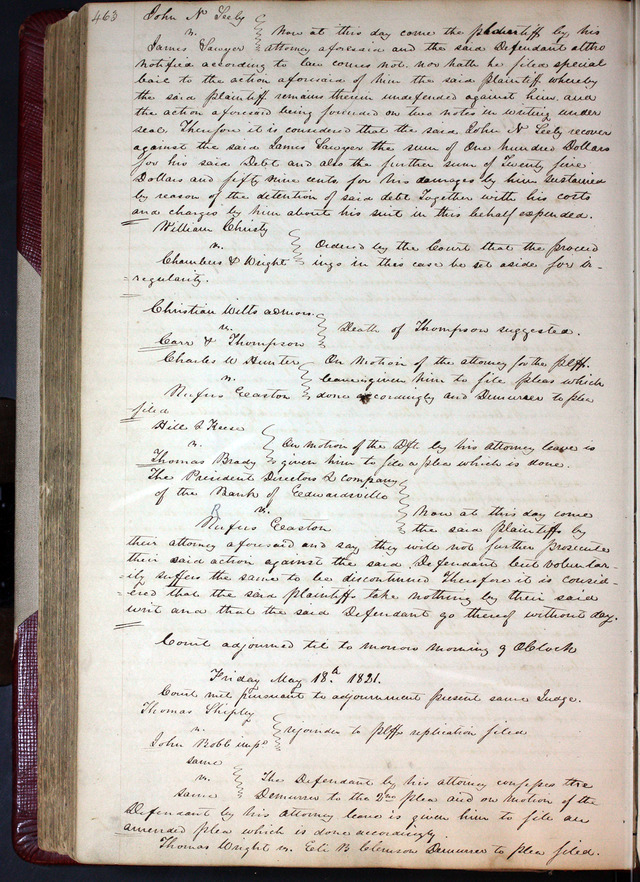 463
John N Seely
vs.
James Sawyer
Now at this day come the plaintiff by his
attorney aforesaid and the said Defendant altho
notified according to law comes not nor hath he filed special
bail to the action aforesaid of him the said plaintiff whereby
the said plaintiff remains therein undefended against him and
the action aforesaid being founded on two notes in writing under
seal. Therefore it is considered that the said John N Seely recover
against the said James Sawyer the sum of One hundred Dollars
for his said Debt and also the further sum of Twenty five
Dollars and fifty nine cents for his damages by him sustained
by reason of the detention of said debt Together with his costs
and charges by him about his suit in this behalf expended.
William Christy
vs.
Chambers & Wright
Ordered by the Court that the proceed
ings in this case be set aside for ir-
regularity.
Christian Wilts admors.
vs.
Carr & Thompson
Death of Thompson suggested.
Charles W Hunter
vs.
Rufus Easton
On Motion of the attorney for the plff.
leave is given him to file pleas which
done accordingly and Demurrer to plea
filed
Hill & Keese
vs.
Thomas Brady
On motion of the Dft. by his attorney leave is
given him to file a plea which is done.
The President Directors & company
of the Bank of Edwardsville
vs.
Rufus Easton
Now at this day come
the said plaintiffs by
their attorney aforesaid and say they will not further prosecute
their said action against the said Defendant but voluntar-
ily suffers the same to be discontinued Therefore it is consid-
ered that the said plaintiffs take nothing by their said
writ and that the said Defendant go thereof without day.
Court adjourned til to morrow morning 9 OClock
Friday May 18th. 1821.
Court met pursuant to adjournment present same Judge.
Thomas Shipley
vs.
John Robb impd
rejoinder to plffs replication filed
same
vs.
same
The Defendant by his attorney confesses the
Demurrer to the 2nd plea and on motion of the
Defendant by his attorney leave is given him to file an
amended plea which is done accordingly.
Thomas Wright vs. Eli B Clemson Demurrer to plea filed.